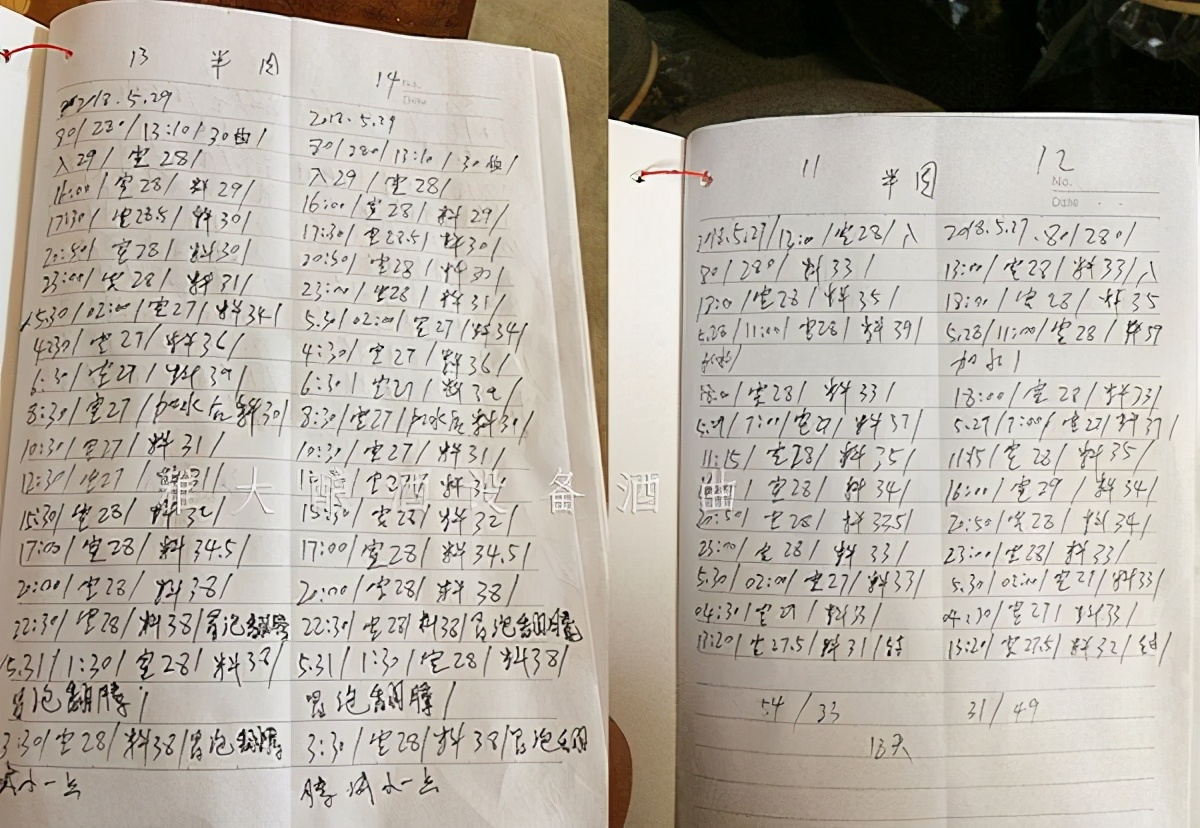 13 半 图
2018.5.29
80/280/13:10/30曲/
入29/室28/
16:00/室28/料29/
17:30/室28.5/料30/
20:50/室28/料30/
23:00/室28/料31/
5.30/02:00/室27/料34/
4:30/室27/料36/
6:30/室27/料39/
8:30/室27/加水后料30/
10:30/室27/料31/
12:30/室27/料31/
15:30/室28/料32/
17:00/室28/料34.5/
20:00/室28/料38/
22:30/室28/料38/冒泡翻腾
5.31/1:30/室28/料38/
冒泡翻腾/
3:30/室28/料38/冒泡翻腾
减小一点
14
2018.5.29
80/280/13:10/30曲/
入29/室28/
16:00/室28/料29/
17:30/室28.5/料30/
20:50/室28/料30/
23:00/室28/料31/
5.30/02:00/室27/料34/
4:30/室27/料36/
6:30/室27/料39/
8:30/室27/加水后料30/
10:30/室27/料31/
室27/料31/
15:30/室28/料32/
17:00/室28/料34.5/
20:00/室28/料38/
22:30/室28/料38/冒泡翻腾
5.31/1:30/室28/料38/
冒泡翻腾/
3:30/室28/料38/冒泡翻
腾减小一点
大酿酒设备酒曲
11 半图
2018.5.27/13:00/室28/入
80/280/料33/
18:00/室28/料35/
5.28/11:00/室28/料39/
加水/
18:00/室28/料33/
5.29/7:00/室27/料37/
11:15/室28/料35/
室28/料34/
20:50/室28/料33.5/
23:00/室28/料33/
5.30/02:00/室27/料33/
04:30/室27/料33/
13:20/室27.5/料31/结
54/33
12
No.
Date
2018.5.27.80/280/
13:00/室28/料33/入
18:00/室28/料35
5.28/11:00/室28/料39
加水/
18:00/室28/料33/
5.29/7:00/室27/料37/
11:15/室28/料35/
16:00/室29/料34/
20:50/室28/料34/
23:00/室28/料33/
5.30/02:00/室27/料33/
04:30/室27/料33/
13:20/室27.5/料32/结/
31/49